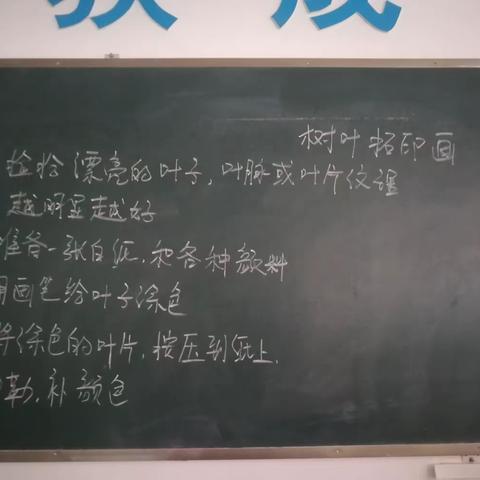 树叶拓印画
捡拾漂亮的叶子,叶脉或叶片纹理
越明显越好
准备一张白纸,和各种颜料
用画笔给叶子涂色
将涂色的叶片,按压到纸上,
勒,补颜色